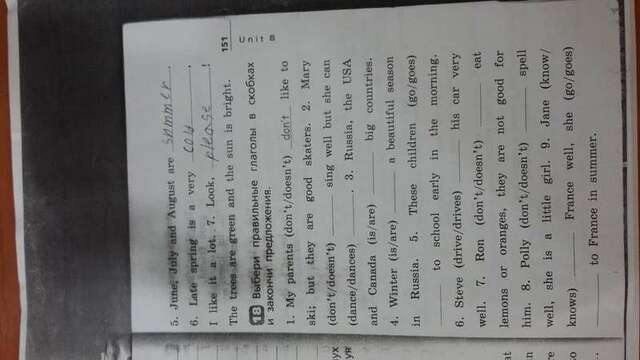 5. June, July and August are summer.
6. Late spring is a very
I like it a lot. 7. Look, please!
The trees are green and the sun is bright.
151
Unit 8
18 Выбери правильные глаголы в скобках
и закончи предложения.
1. My parents (don't/doesn't) don't like to
ski; but they are good skaters. 2. Mary
(don't/doesn't) ____ sing well but she can
(dance/dances) ____. 3. Russia, the USA
and Canada (is/are) ____ big countries.
4. Winter (is/are) ____ a beautiful season
in Russia. 5. These children (go/goes)
____ to school early in the morning.
6. Steve (drive/drives) ____ his car very
well. 7. Ron (don't/doesn't) ____ eat
lemons or oranges, they are not good for
him. 8. Polly (don't/doesn't) ____ spell
well, she is a little girl. 9. Jane (know/
knows) ____ France well, she (go/goes)
____ to France in summer.